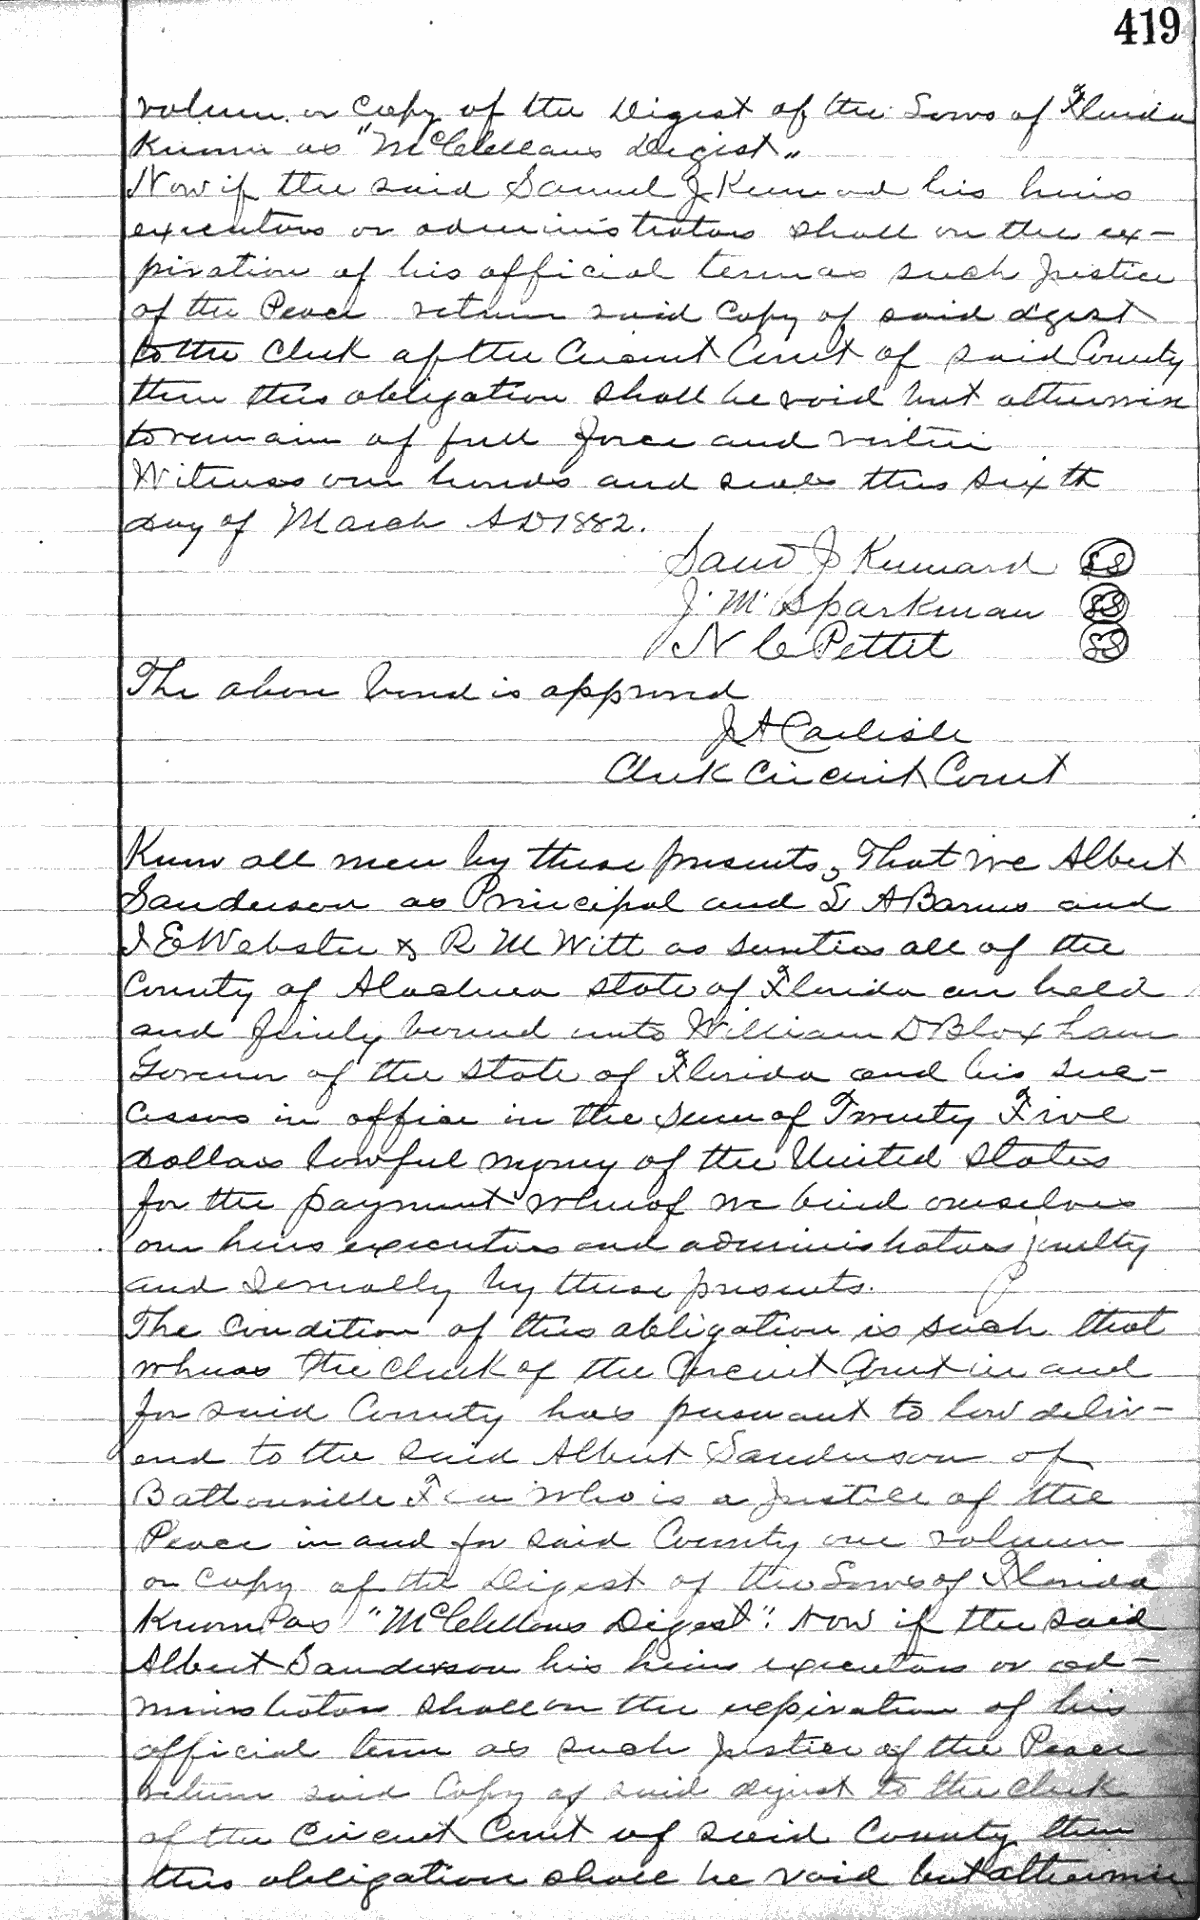 419
volum or Copy of the Digest of the Laws of Florida
Known as "McClellans Digist"
Now if the said Samuel J Kennard his heirs
executors or administrators shall on the ex-
piration of his official term as such Justice
of the Peace return said Copy of said digest
to the Clerk of the Circuit Court of said County
then this obligation shall be void but otherwise
to remain of full force and virtue
Witness our hands and seals this sixth
day of March AD 1882.
Saml J Kennard SS
J. M. Sparkman SS
N C Pettit SS
The above bond is approved
J A Carlisle
Clerk Circuit Court
Know all men by these presents, That we Albert
Sanderson as Principal and L A Barnes and
I E Webster & R M Witt as sureties all of the
County of Alachua State of Florida are held
and firmly bound unto William D Bloxham
Governor of the State of Florida and his suc-
cessors in office in the sum of Twenty Five
dollars lawful money of the United States
for the payment whereof we bind ourselves
our heirs executors and administrators jointly
and severally by these presents.
The Condition of this obligation is such that
whereas the Clerk of the Circuit Court in and
for said County has pursuant to law deliv-
ered to the said Albert Sanderson of
Fla who is a Justice of the
Peace in and for said County one volum
or Copy of the Digest of the Laws of Florida
Known as "McClellans Digest". Now if the said
Albert Sanderson his heirs executors or ad-
ministrators shall on the expiration of his
official term as such Justice of the Peace
return said Copy of said digest to the Clerk
of the Circuit Court of said County then
this obligation shall be void but otherwise